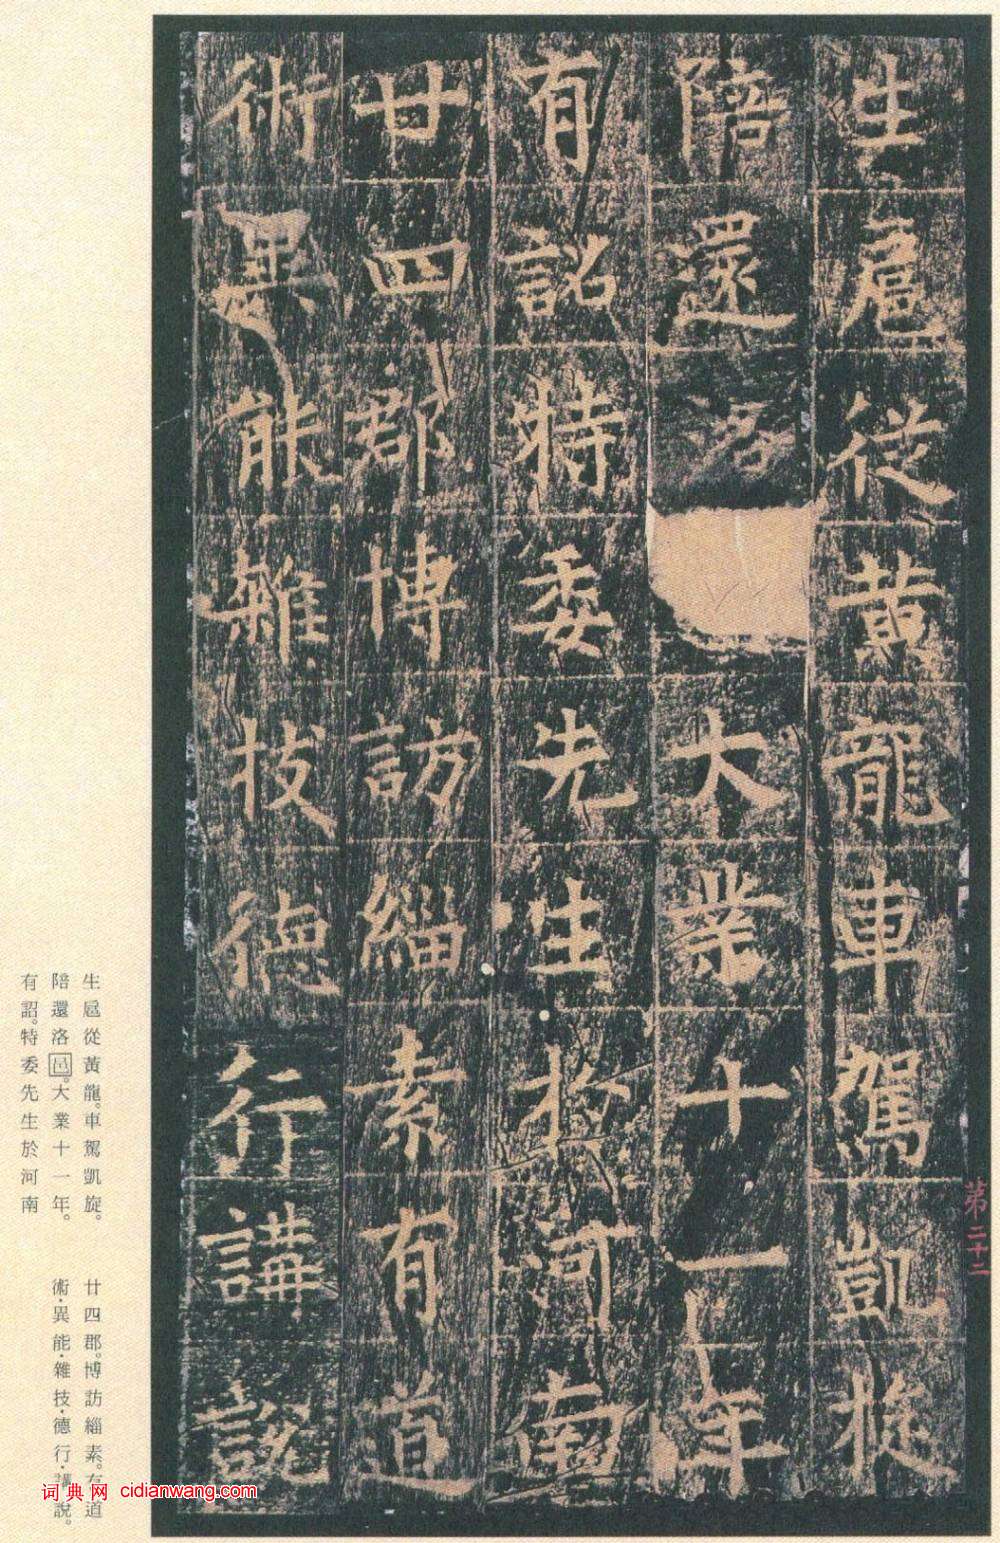 生扈從黃龍車駕凱旋
陪還洛大業十一年
有詔特委先生於河南
廿四郡博訪緇素有道
術異能雜技德行講説
第二十二
生扈從黃龍。車駕凱旋。
陪還洛邑。大業十一年。
有詔。特委先生於河南
廿四郡。博訪緇素。有道
術·異能·雜技·德行·講説。
词典网 cidianwang.com